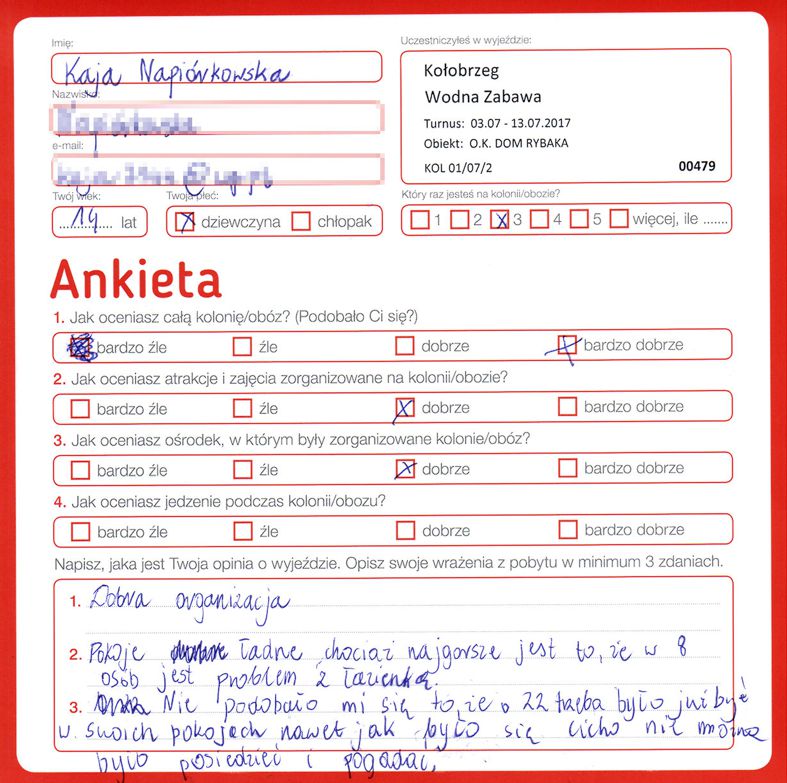 Imię:
Kaja Napiórkowska
Nazwisko:
e-mail:
Twój wiek:
14 lat
Twoja płeć:
dziewczyna chłopak
Uczestniczyłeś w wyjeździe:
Kołobrzeg
Wodna Zabawa
Turnus: 03.07 - 13.07.2017
Obiekt: O.K. DOM RYBAKA
KOL 01/07/2 00479
Który raz jesteś na kolonii/obozie?
1 2 3 4 5 więcej, ile .......
Ankieta
1. Jak oceniasz całą kolonię/obóz? (Podobało Ci się?)
bardzo źle źle dobrze bardzo dobrze
2. Jak oceniasz atrakcje i zajęcia zorganizowane na kolonii/obozie?
bardzo źle źle dobrze bardzo dobrze
3. Jak oceniasz ośrodek, w którym były zorganizowane kolonie/obóz?
bardzo źle źle dobrze bardzo dobrze
4. Jak oceniasz jedzenie podczas kolonii/obozu?
bardzo źle źle dobrze bardzo dobrze
Napisz, jaka jest Twoja opinia o wyjeździe. Opisz swoje wrażenia z pobytu w minimum 3 zdaniach.
1. Dobra organizacja
2. Pokoje ładne chociaż najgorsze jest to, że w 8
osób jest problem z łazienką.
3. Nie podobało mi się to, że o 22 trzeba było już być
w swoich pokojach nawet jak było się cicho nie można
było posiedzieć i pogadać,